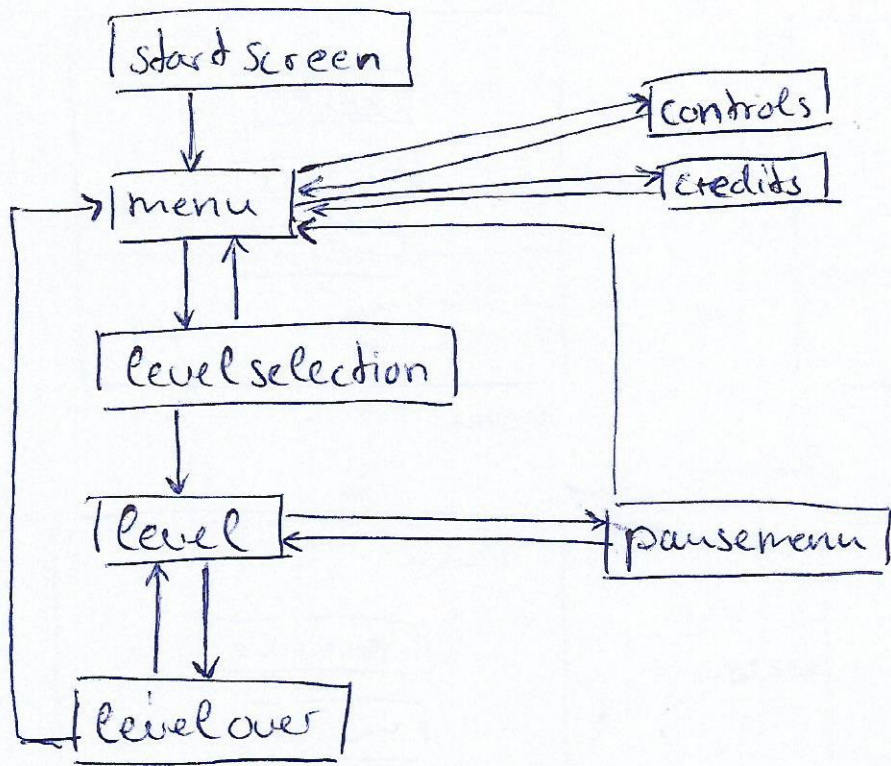 startscreen
controls
menu
credits
levelselection
level
pausemenu
levelover